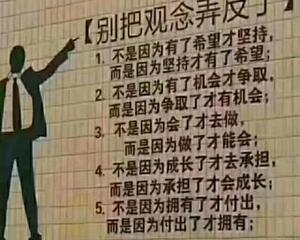 【别把观念弄反了
1. 不是因为有了希望才坚持,
而是因为坚持才有了希望;
2. 不是因为有了机会才争取,
而是因为争取了才有机会;
3. 不是因为会了才去做,
而是因为做了才能会;
4. 不是因为成长了才去承担,
而是因为承担了才会成长;
5. 不是因为拥有了才付出,
而是因为付出了才拥有;